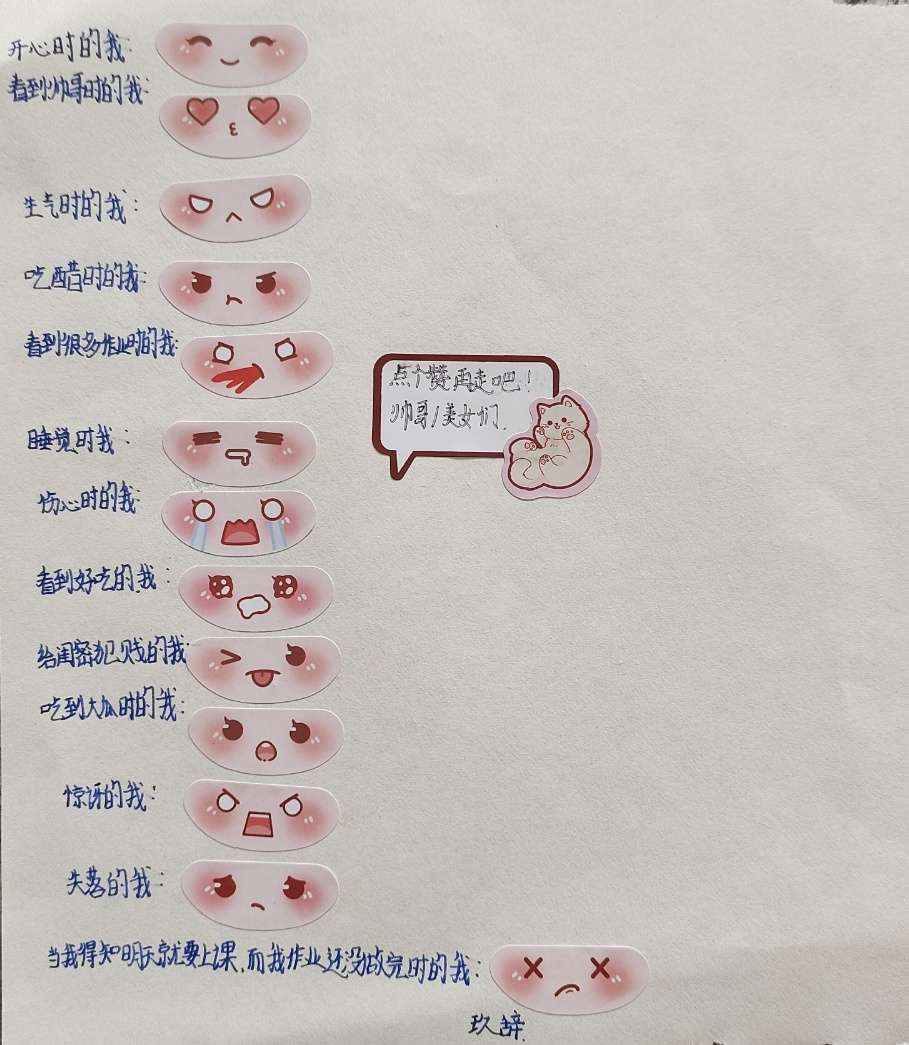 开心时的我:
看到帅哥时的我:
生气时的我:
吃醋时的我:
看到很多作业时的我:
点个赞再走吧!
帅哥/美女们
睡觉时我:
伤心时的我:
看到好吃的我:
给闺密犯贱的我:
吃到大瓜时的我:
惊讶的我:
失落的我:
当我得知明天就要上课,而我作业还没做完时的我:
玖辞